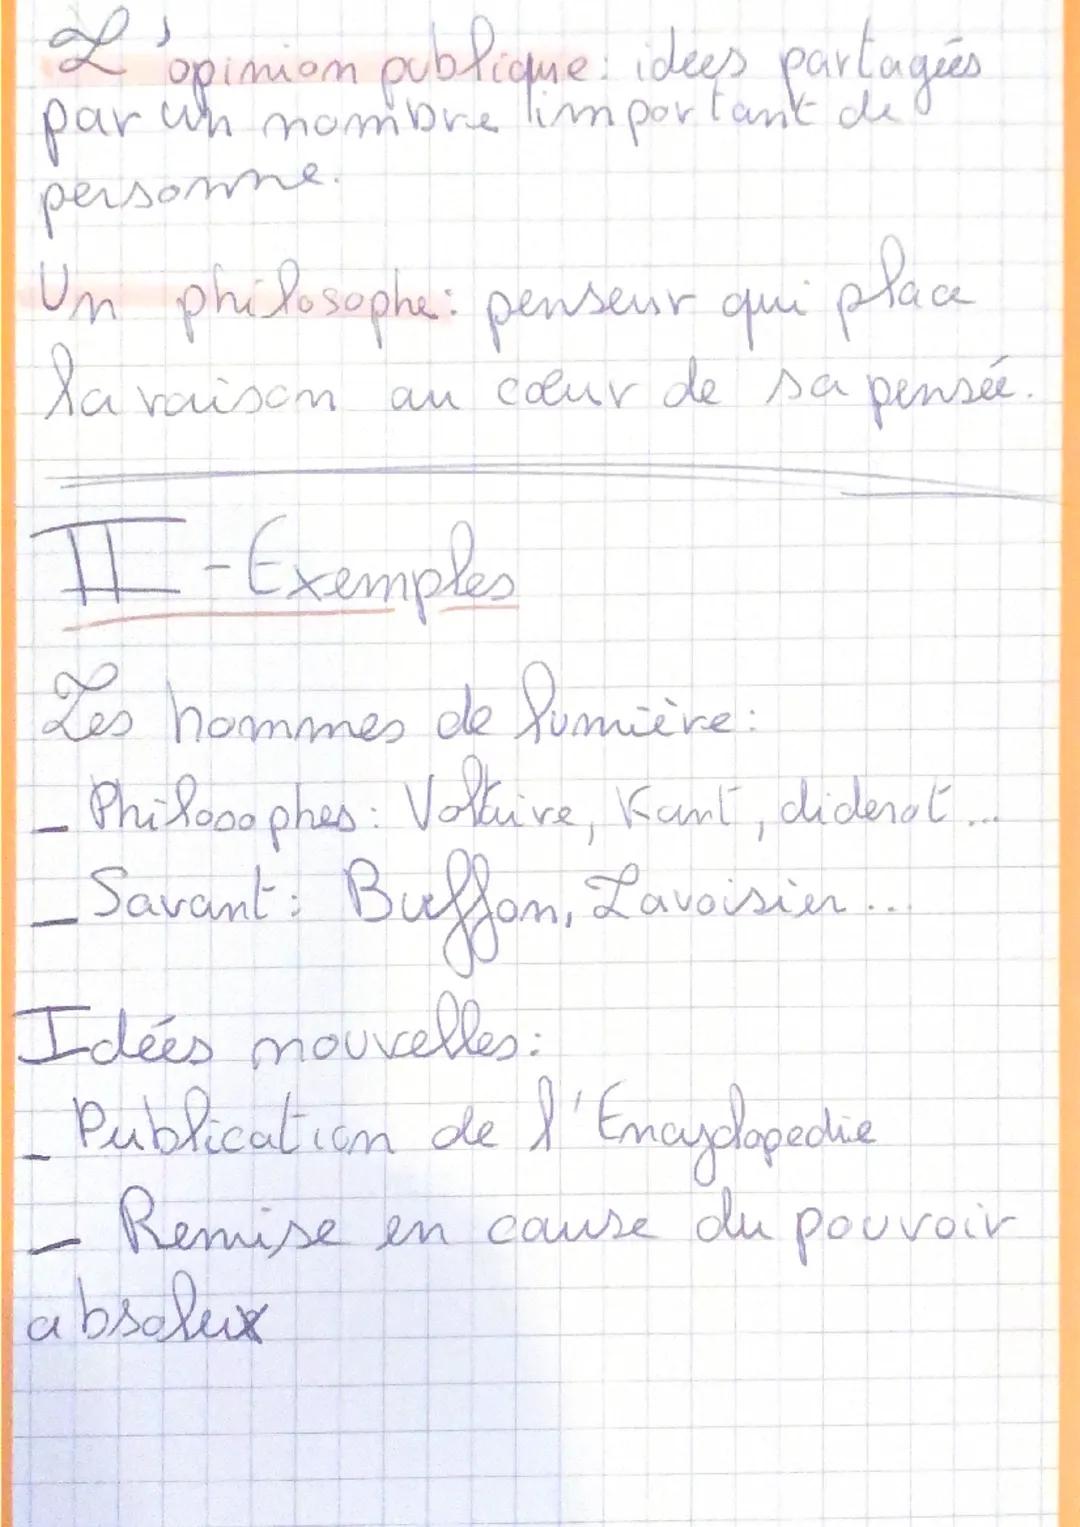 L'opinion publique: idées partagées
par un nombre important de
personne.
Un philosophe: penseur qui place
la raison au cœur de sa pensée.
II - Exemples
Les hommes de lumière:
_ Philosophes: Voltaire, Kant, diderot...
_ Savant: Buffon, Lavoisier...
Idées nouvelles:
_ Publication de l'Encyclopedie
_ Remise en cause du pouvoir
absolux